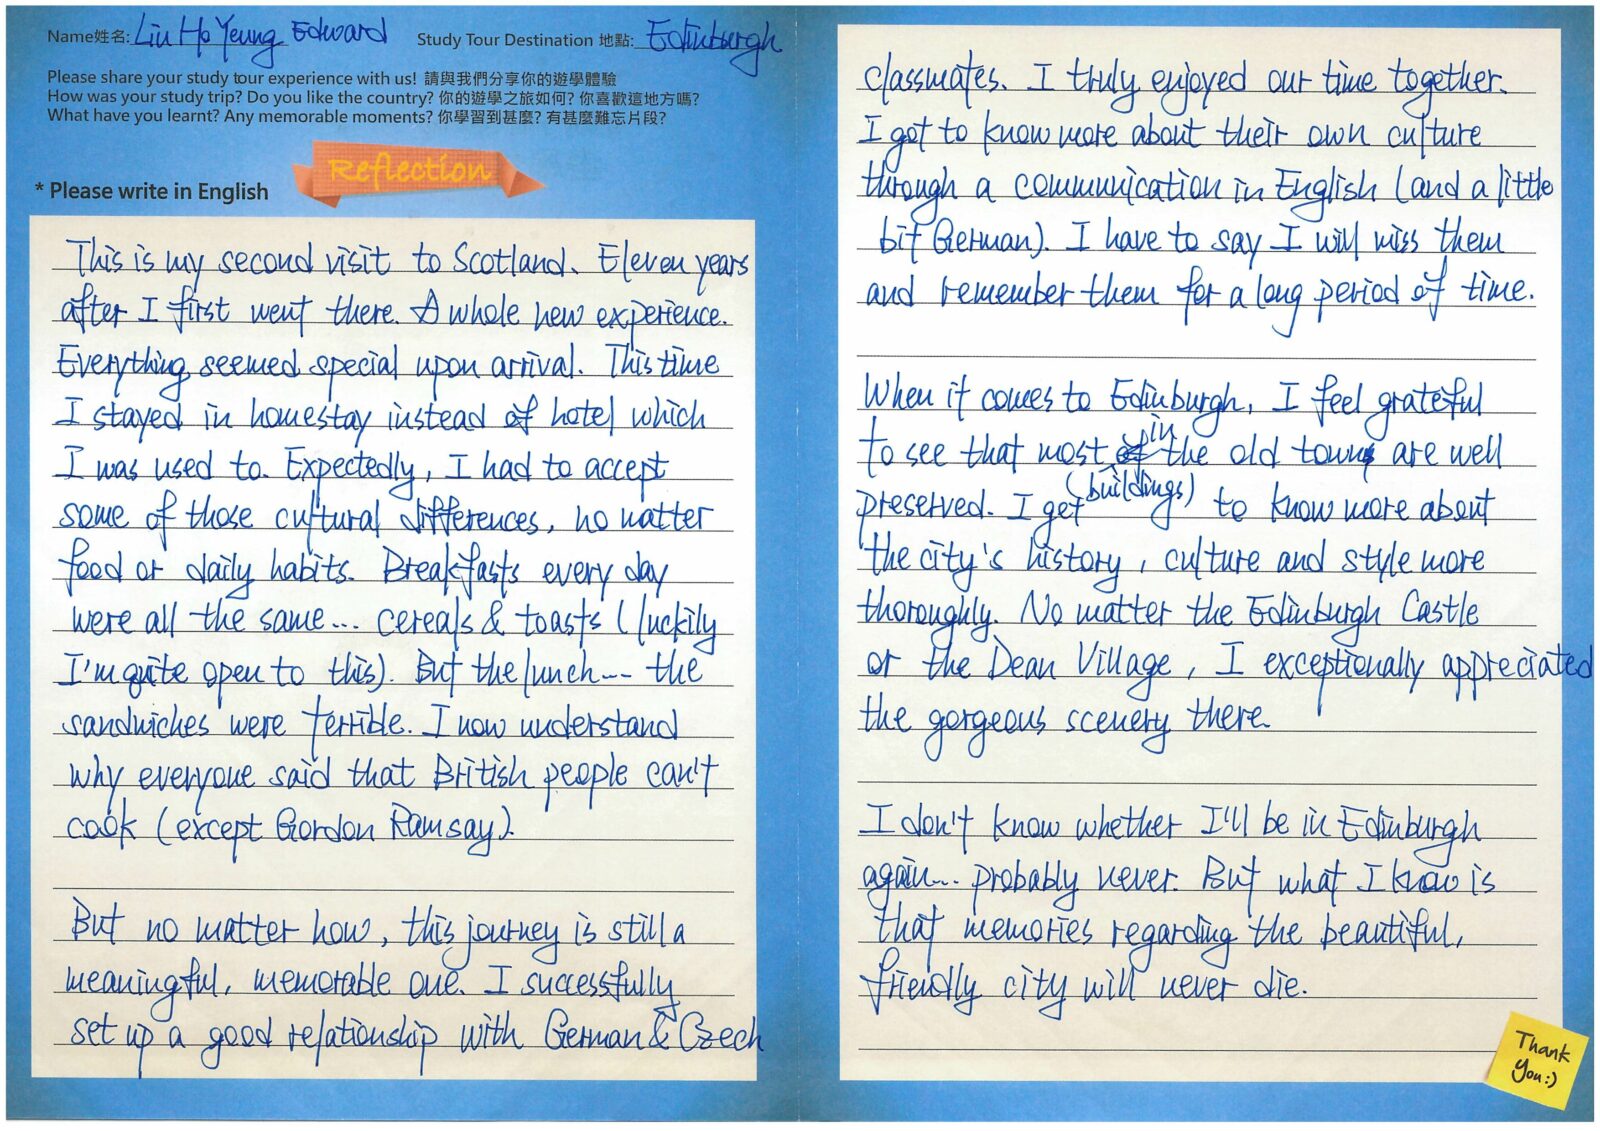 Name姓名: Liu Ho Yeung Edward Study Tour Destination 地點: Edinburgh
Please share your study tour experience with us! 請與我們分享你的遊學體驗
How was your study trip? Do you like the country? 你的遊學之旅如何? 你喜歡這地方嗎?
What have you learnt? Any memorable moments? 你學習到甚麼? 有甚麼難忘片段?
Reflection
* Please write in English
This is my second visit to Scotland. Eleven years
after I first went there. A whole new experience.
Everything seemed special upon arrival. This time
I stayed in homestay instead of hotel which
I was used to. Expectedly, I had to accept
some of those cultural differences, no matter
food or daily habits. Breakfasts every day
were all the same... cereals & toasts (luckily
I'm quite open to this). But the lunch... the
sandwiches were terrible. I now understand
why everyone said that British people can't
cook (except Gordon Ramsay).
But no matter how, this journey is still a
meaningful, memorable one. I successfully
set up a good relationship with German & Czech
classmates. I truly enjoyed our time together.
I got to know more about their own culture
through a communication in English (and a little
bit German). I have to say I will miss them
and remember them for a long period of time.
When it comes to Edinburgh, I feel grateful
to see that most in the old town are well
(buildings)
preserved. I get to know more about
the city's history, culture and style more
thoroughly. No matter the Edinburgh Castle
or the Dean Village, I exceptionally appreciated
the gorgeous scenery there.
I don't know whether I'll be in Edinburgh
again... probably never. But what I know is
that memories regarding the beautiful,
friendly city will never die.
Thank
You:)